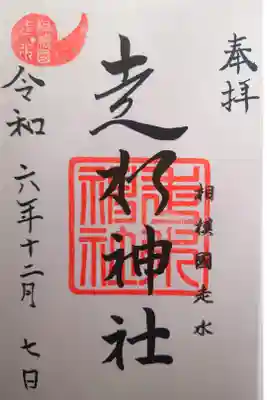 奉拝
相模國走水
走水神社
走水神社
相模国走水
令和六年十二月七日